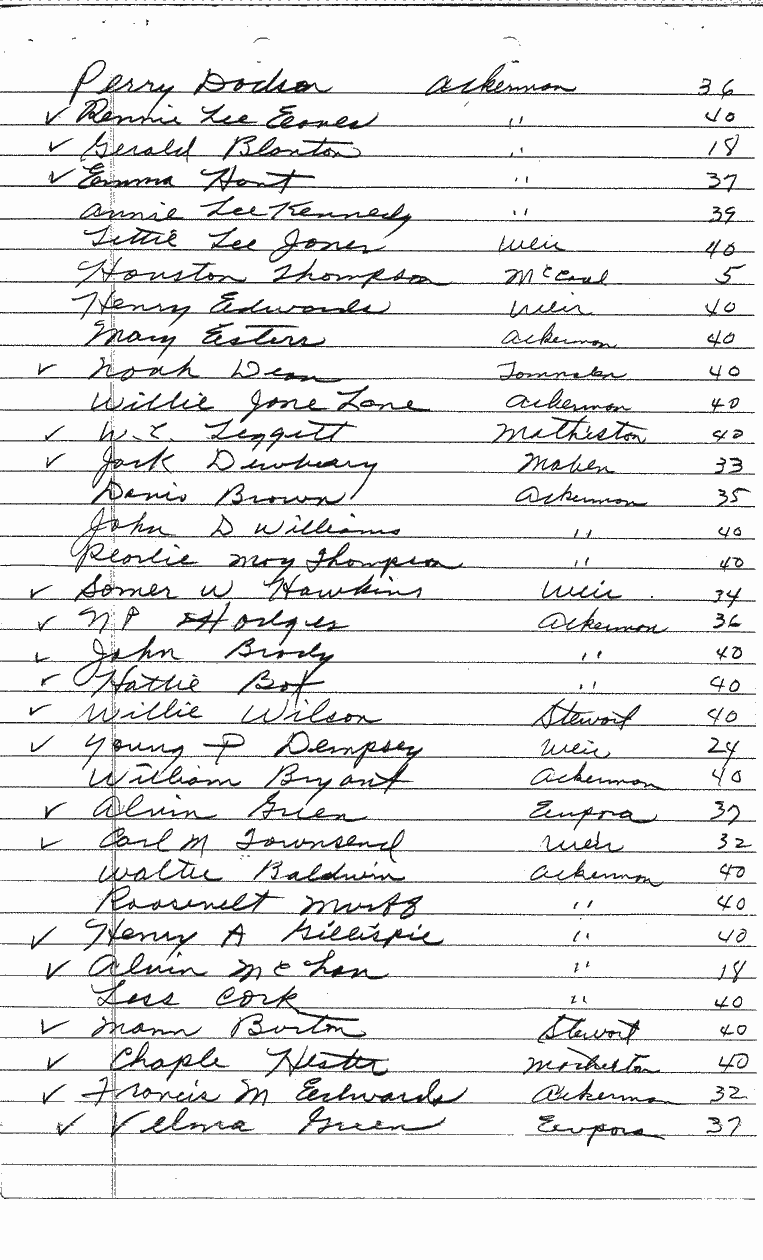 Perry Dodson Ackerman 36
✓ Rennie Lee Eaves " 40
✓ Gerald Blanton " 18
✓ Emma Hunt " 37
Annie Lee Kennedy " 39
Lettie Lee Jones Weir 40
Houston Thompson McCool 5
Henry Edwards Weir 40
Mary Esters Ackerman 40
✓ Noah Dean 40
Willie Jane Lane Ackerman 40
✓ W.C. Leggett Mathiston 40
✓ Jack Dewberry Maben 33
Davis Brown Ackerman 35
John D Williams " 40
Pearlie May Thompson " 40
✓ Somer W Hawkins Weir 34
✓ N P Hodges Ackerman 36
✓ John Brody " 40
✓ Hattie Box " 40
✓ Willie Wilson Stewart 40
✓ Young P Dempsey Weir 24
William Bryant Ackerman 40
✓ Alvin Green Eupora 37
✓ Carl M Townsend Weir 32
Walter Baldwin Ackerman 40
Roosevelt " 40
✓ Henry A Gillispie " 40
✓ Alvin " 18
Less Cork " 40
✓ Mann Burton Stewart 40
✓ Chaple Hester Mathiston 40
✓ Francis M Edwards Ackerman 32
✓ Velma Green Eupora 37